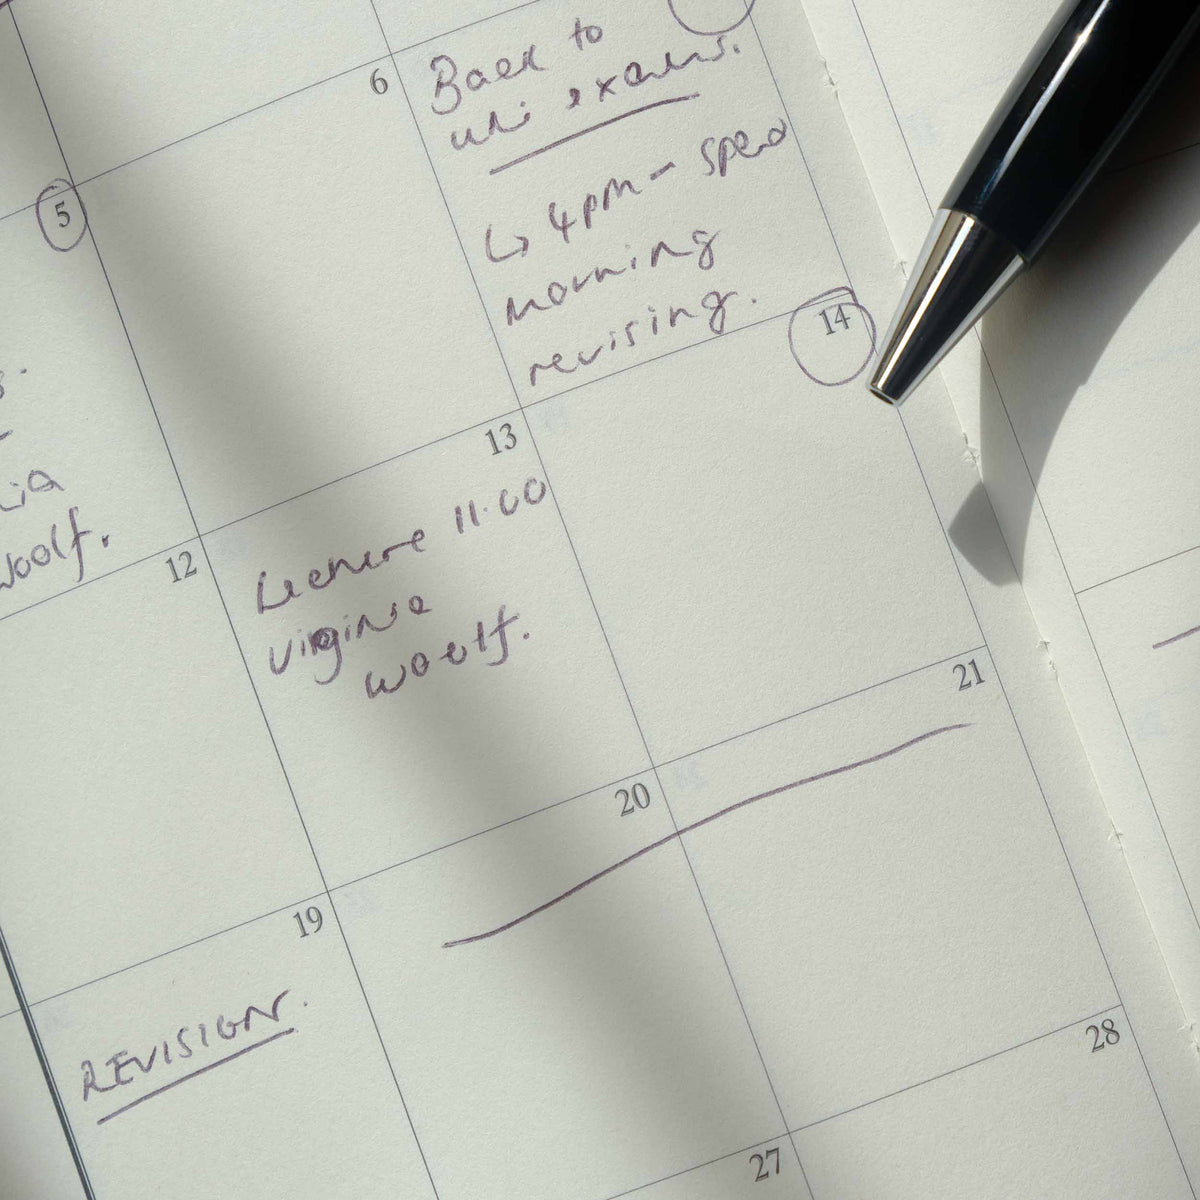 5
ia
Woolf.
6
Back to
uni exams.
↳ 4pm - spend
morning
revising.
12
13
Lecture 11.00
Virginia
Woolf.
14
19
REVISION.
20
21
27
28